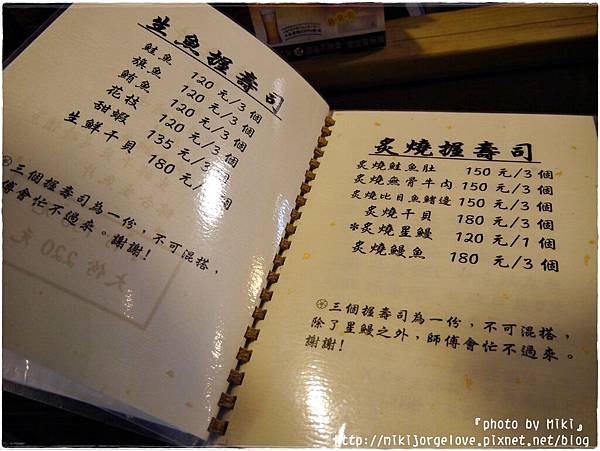 生魚握壽司
鮭魚 120 元/3 個
旗魚 120 元/3 個
鮪魚 120 元/3 個
花枝 120 元/3 個
甜蝦 135 元/3 個
生鮮干貝 180 元/3 個
※三個握壽司為一份，不可混搭，
師傅會忙不過來。謝謝！
炙燒握壽司
炙燒鮭魚肚 150 元/3 個
炙燒無骨牛肉 150 元/3 個
炙燒比目魚鰭邊 150 元/3 個
炙燒干貝 180 元/3 個
*炙燒星鰻 120 元/1 個
炙燒鰻魚 180 元/3 個
※三個握壽司為一份，不可混搭，
除了星鰻之外，師傅會忙不過來。
謝謝！
『photo by Miki』
http://mikijorgelove.pixnet.net/blog